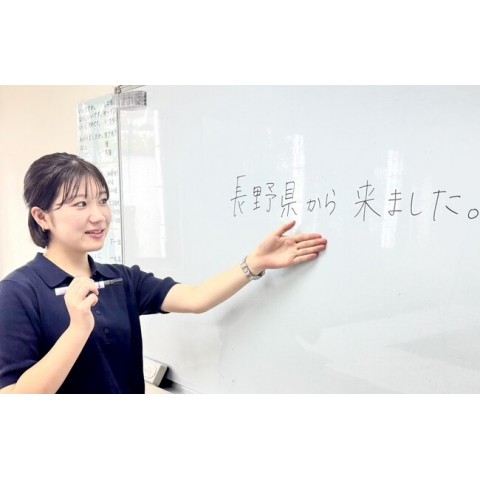 長野県から来ました。